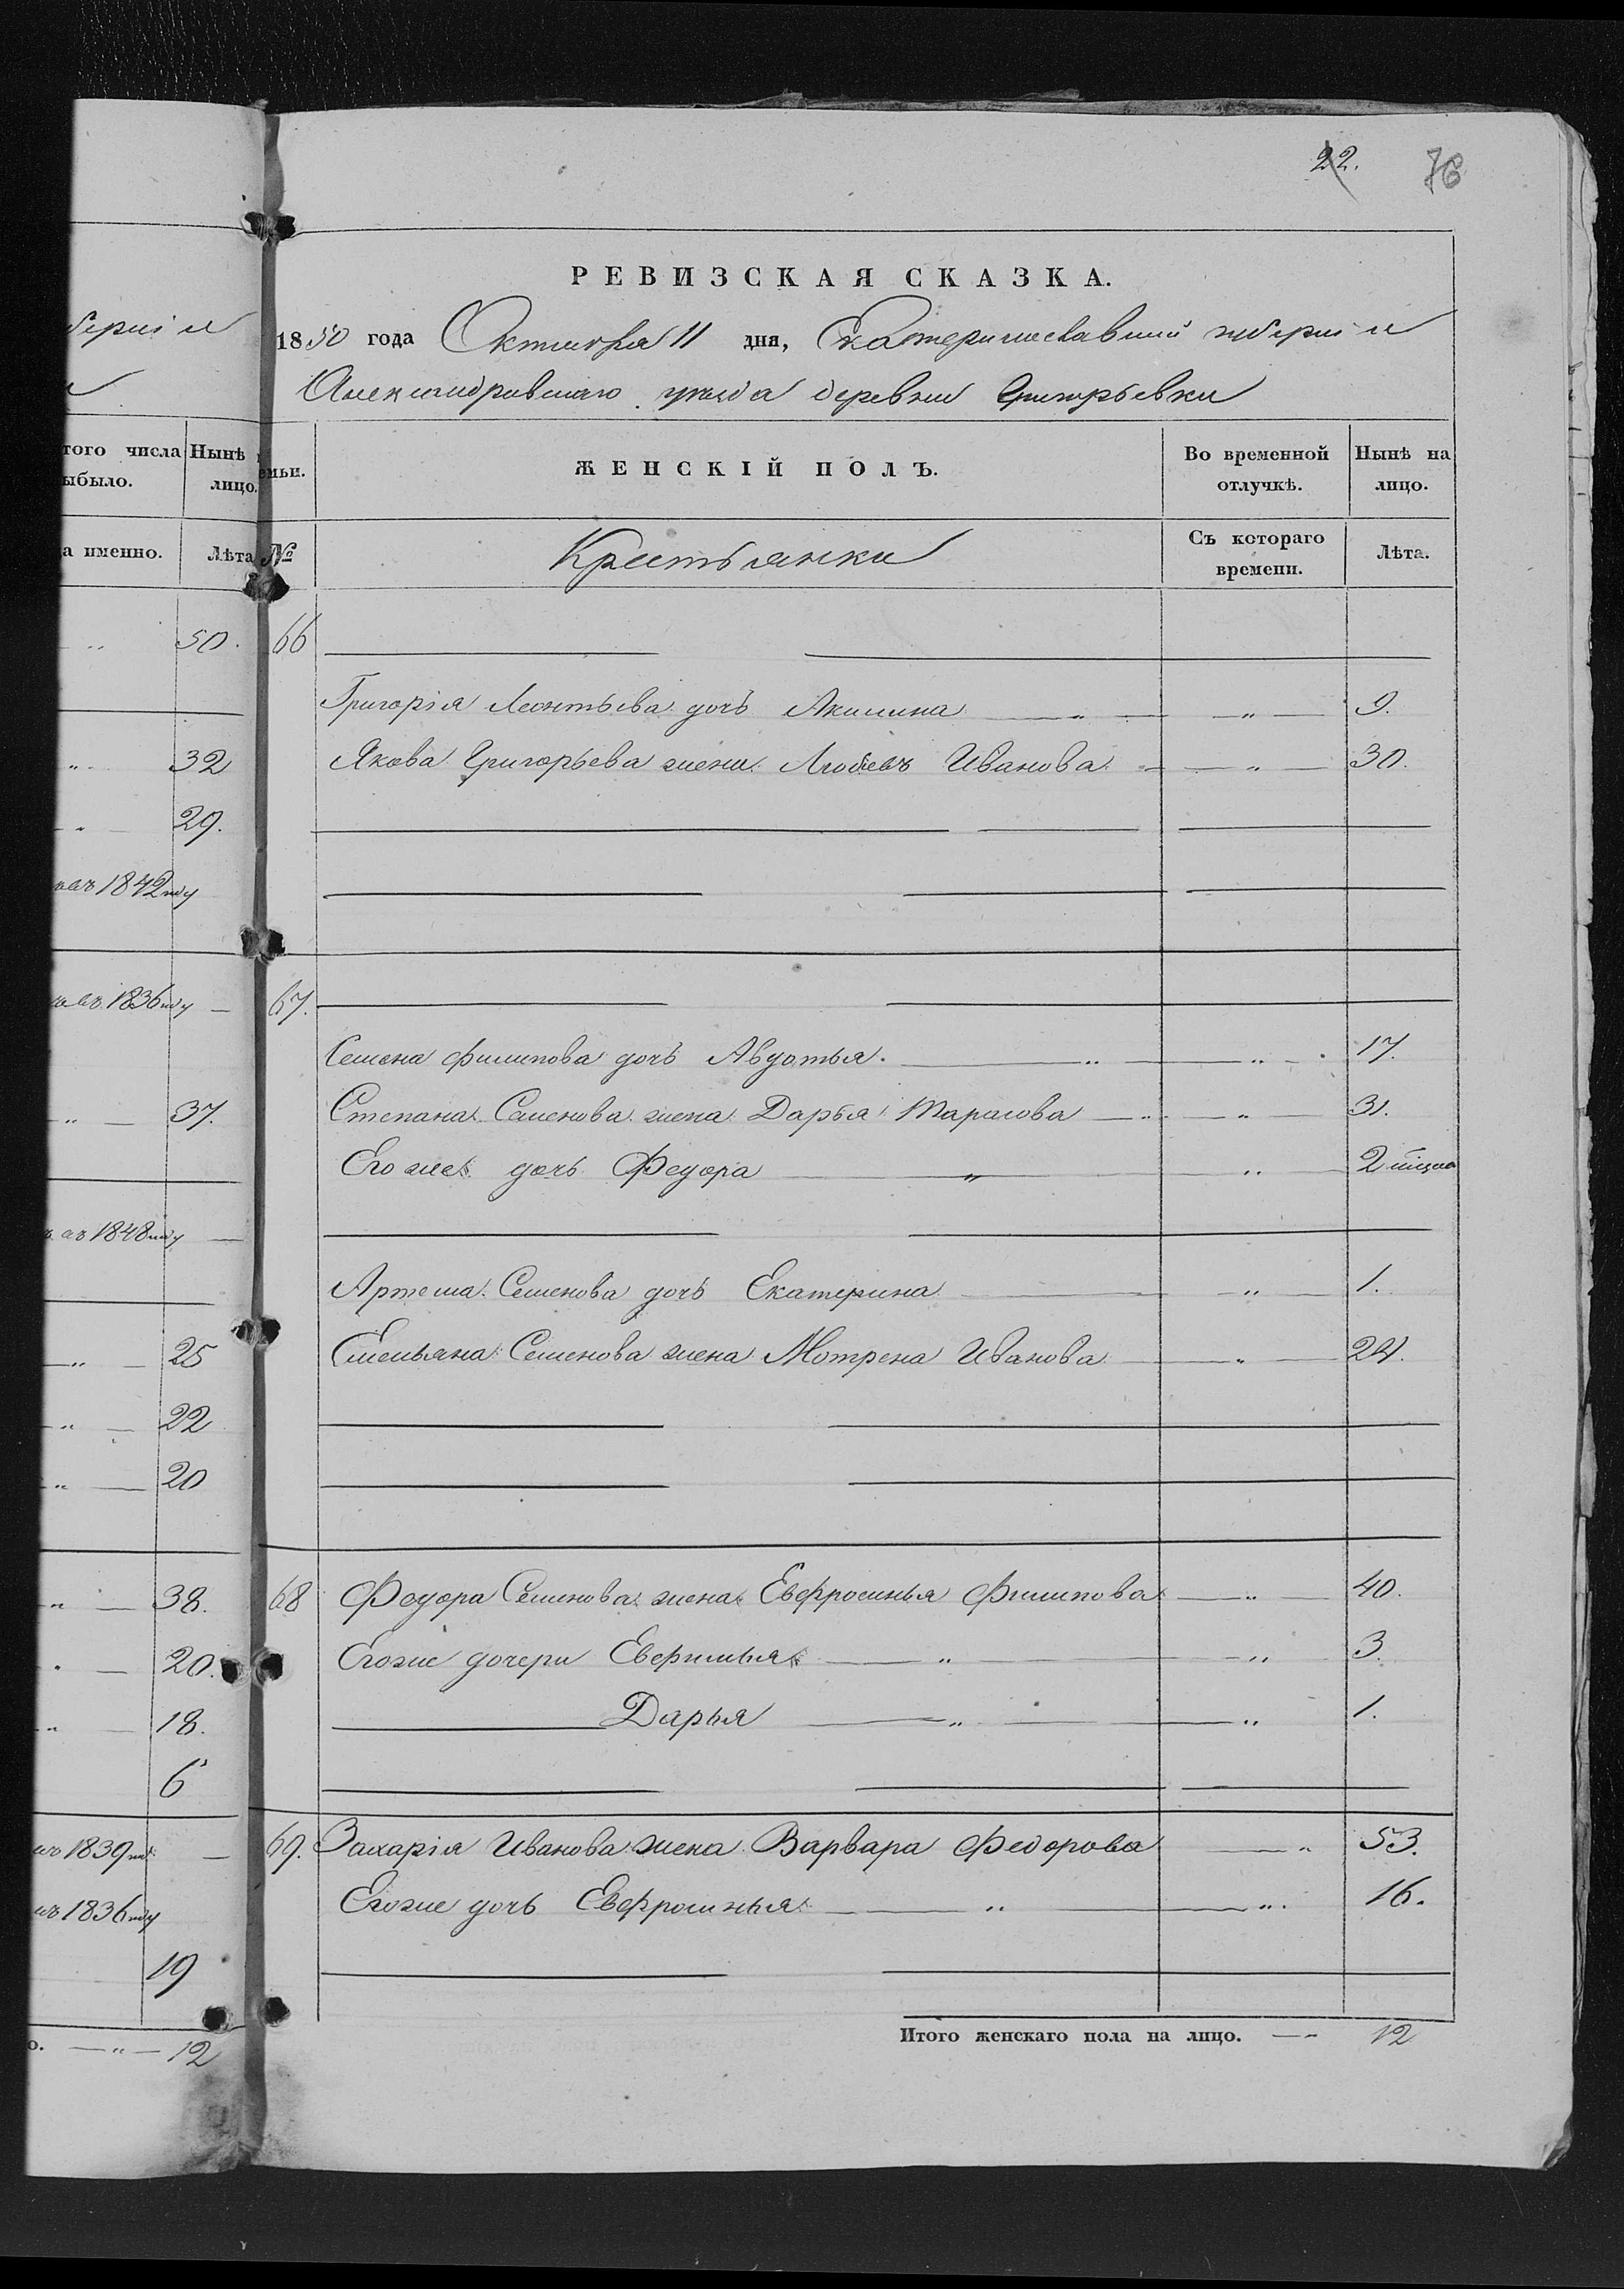 22. 76
РЕВИЗСКАЯ СКАЗКА.
1850 года Октября 11 дня, Екатеринославской губерніи
Александровскаго уѣзда деревни Григорьевки
берніи
того числа
ыбыло.
Нынѣ
лицо.
емьи.
ЖЕНСКІЙ ПОЛЪ.
Во временной
отлучкѣ.
Нынѣ на
лицо.
а именно.
Лѣта
№
Крестьянки
Съ котораго
времени.
Лѣта.
„ 50. 66
Григорія Леонтьева дочь Акилина „ „ 9.
„ 32 Якова Григорьева жена Любовь Иванова „ „ 30.
„ 29.
въ 1842 году
въ 1836 году — 67.
Семена Филипова дочь Авдотья. „ „ 17.
„ 37. Степана Семенова жена Дарья Тарасова „ „ 31.
Его же дочь Федора „ „ 2
въ 1848 году —
Артема Семенова дочь Екатерина „ 1.
„ 25 Емельяна Семенова жена Мотрена Иванова „ 24.
„ 22
„ 20
„ 38. 68 Федора Семенова жена Евфросинья Филипова „ 40.
„ 20. Егоже дочери „ „ 3.
„ 18. Дарья „ „ 1.
6
въ 1839 — 69. Захарія Иванова жена Варвара Федорова „ 53.
въ 1836 году Егоже дочь Евфросинья „ „ 16.
19
о. — „ — 12
Итого женскаго пола на лицо. — „ 12